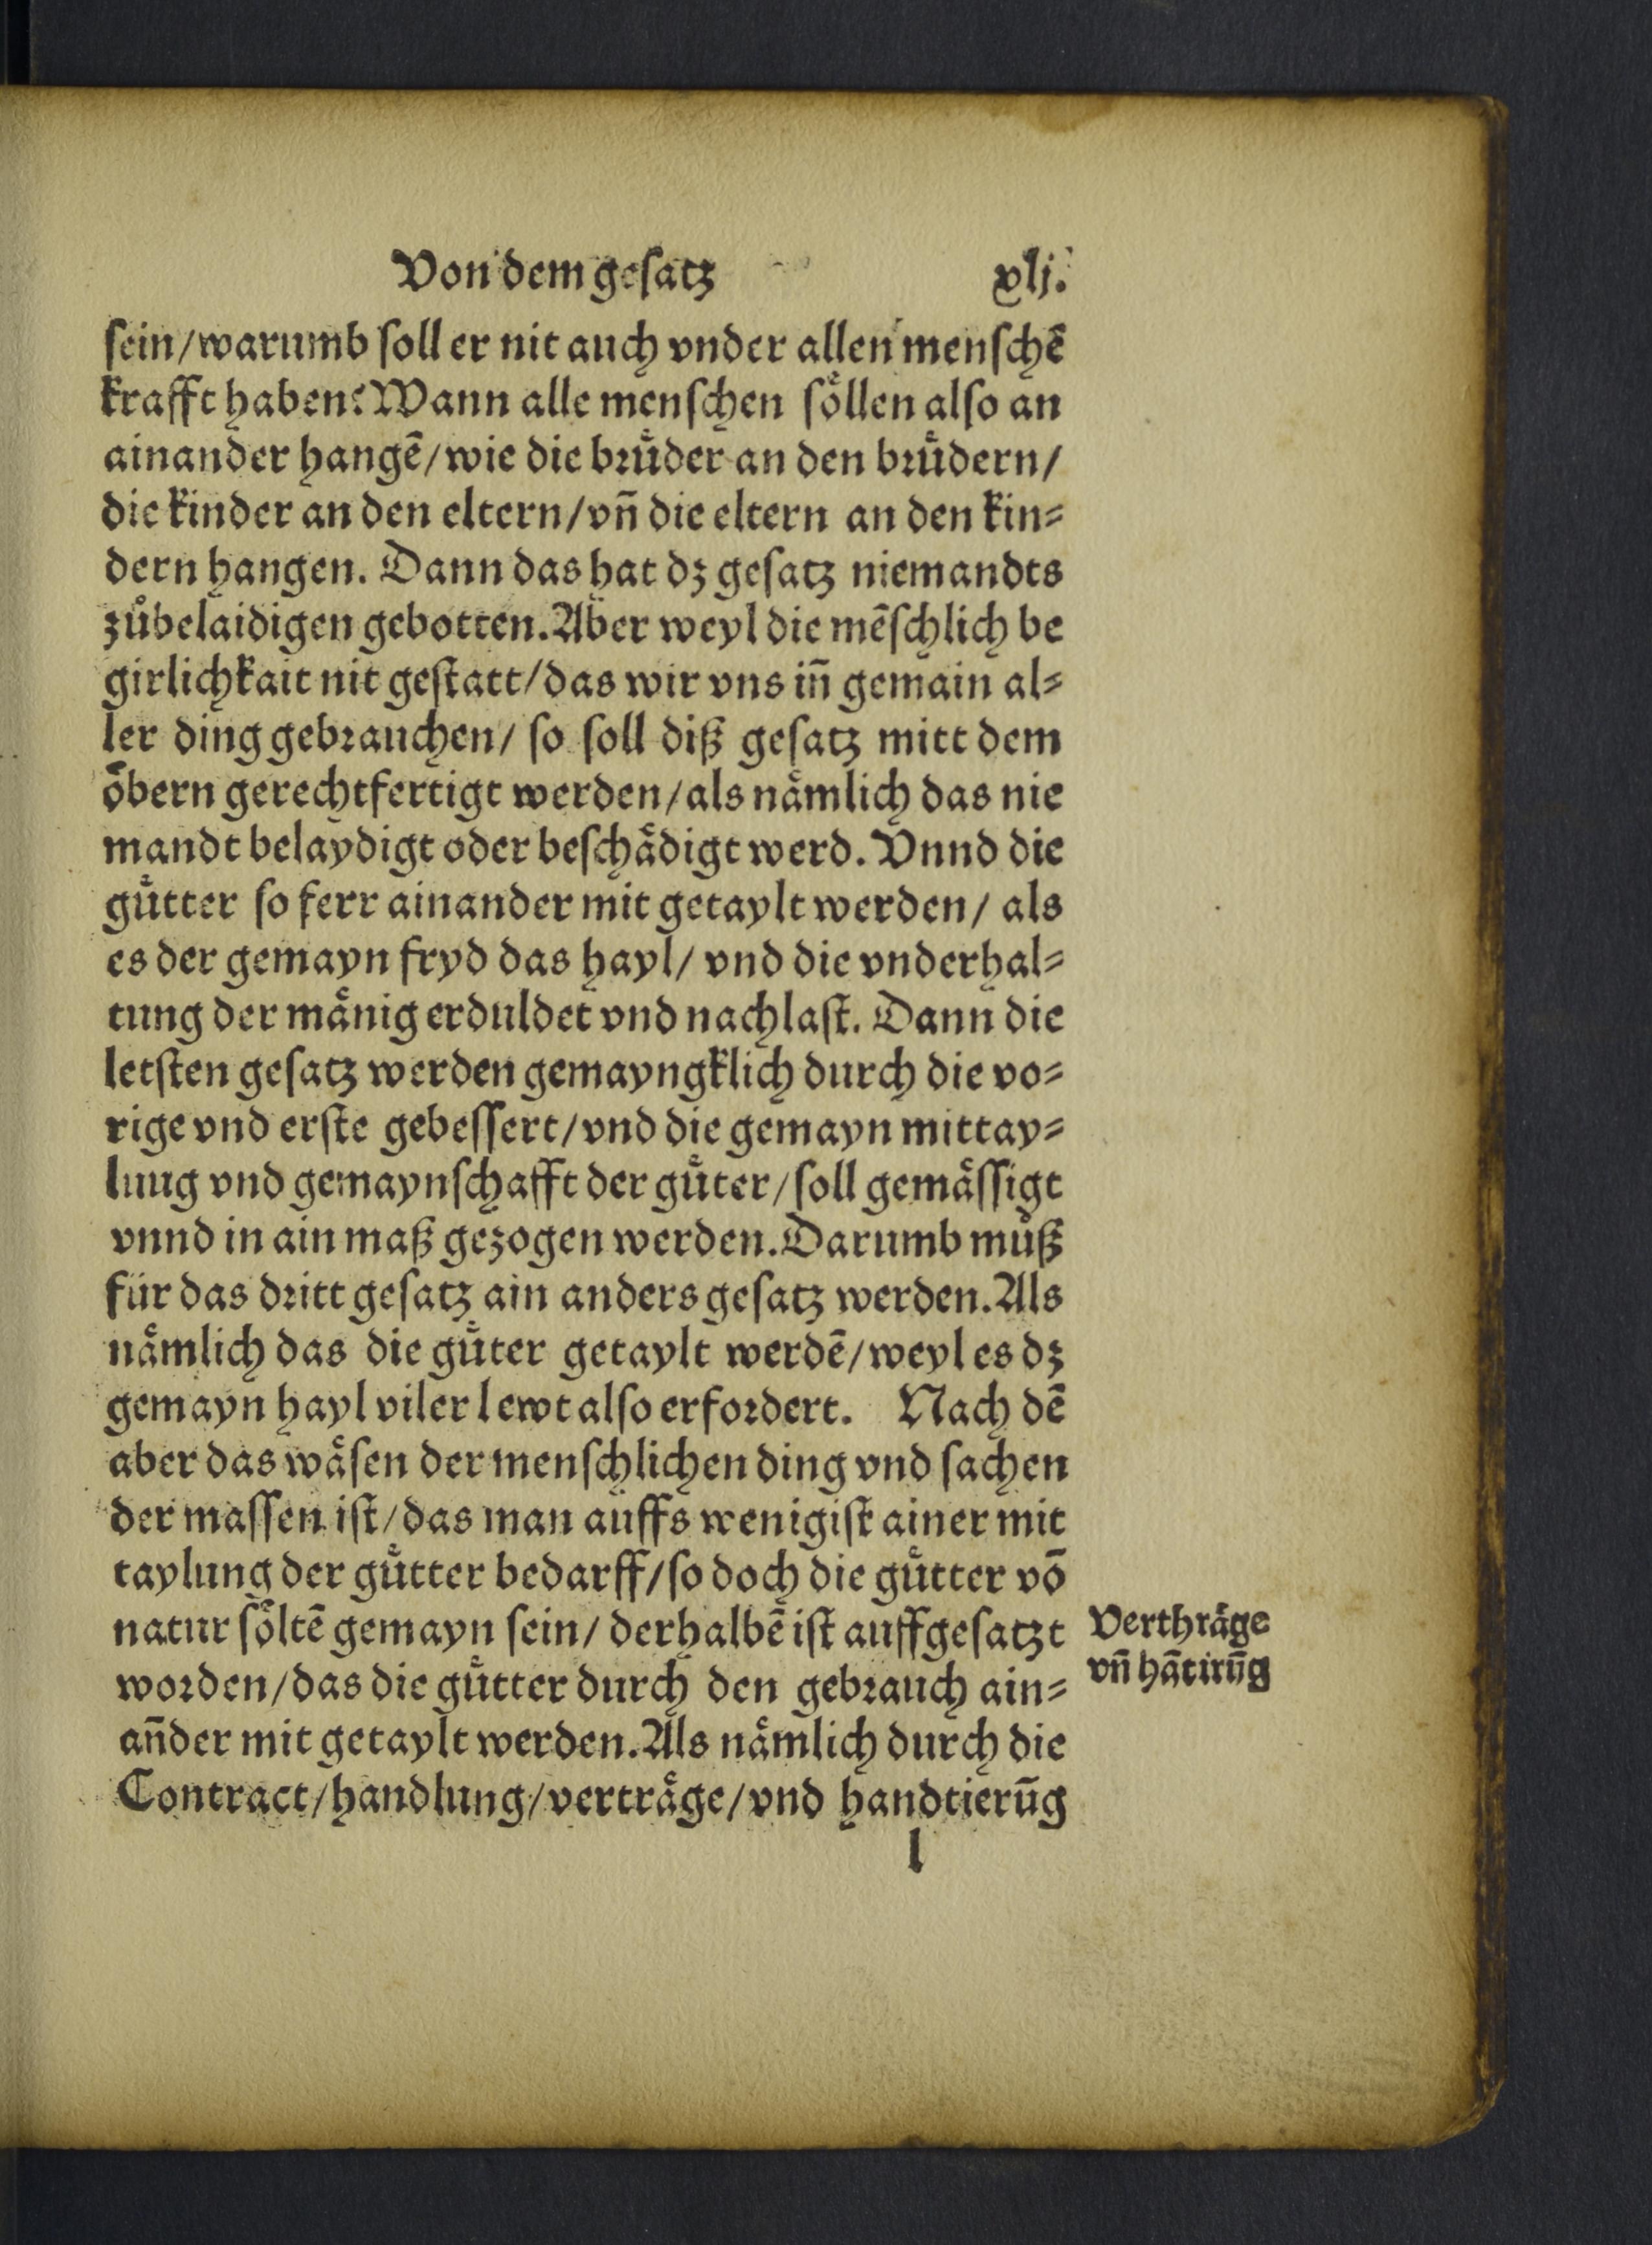 Von dem geſatz xlj.
ſein/warumb ſoll er nit auch vnder allen menſchē
krafft haben? Wann alle menſchen ſoͤllen alſo an
ainander hangē/wie die bꝛuͤder an den bꝛuͤdern/
die kinder an den eltern/vn̄ die eltern an den kin⸗
dern hangen. Dann das hat dz geſatz niemandts
zuͦbelaidigen gebotten. Aber weyl die mēſchlich be
girlichkait nit geſtatt/das wir vns in̄ gemain al⸗
ler ding gebꝛauchen/ ſo ſoll diß geſatz mitt dem
oͤbern gerechtfertigt werden/als naͤmlich das nie
mandt belaydigt oder beſchaͤdigt werd. Vnnd die
guͤtter ſo ferr ainander mit getaylt werden/ als
es der gemayn fryd das hayl/ vnd die vnderhal⸗
tung der maͤnig erduldet vnd nachlaſt. Dann die
letſten geſatz werden gemayngklich durch die vo⸗
rige vnd erſte gebeſſert/vnd die gemayn mittay⸗
luug vnd gemaynſchafft der guͤter/ſoll gemaͤſſigt
vnnd in ain maß gezogen werden. Darumb muͦß
für das dꝛitt geſatz ain anders geſatz werden. Als
naͤmlich das die guͤter getaylt werdē/weyl es dz
gemayn hayl viler lewt alſo erfoꝛdert. Nach dē
aber das waͤſen der menſchlichen ding vnd ſachen
der maſſen iſt/das man auffs wenigiſt ainer mit
taylung der guͤtter bedarff/ſo doch die guͤtter vō
natur ſoͤltē gemayn ſein/ derhalbē iſt auffgeſatzt
woꝛden/das die guͤtter durch den gebꝛauch ain⸗
an̄der mit getaylt werden. Als naͤmlich durch die
Contract/handlung/vertraͤge/vnd handtierūg
Verthraͤge
vn̄ hātirūg
l